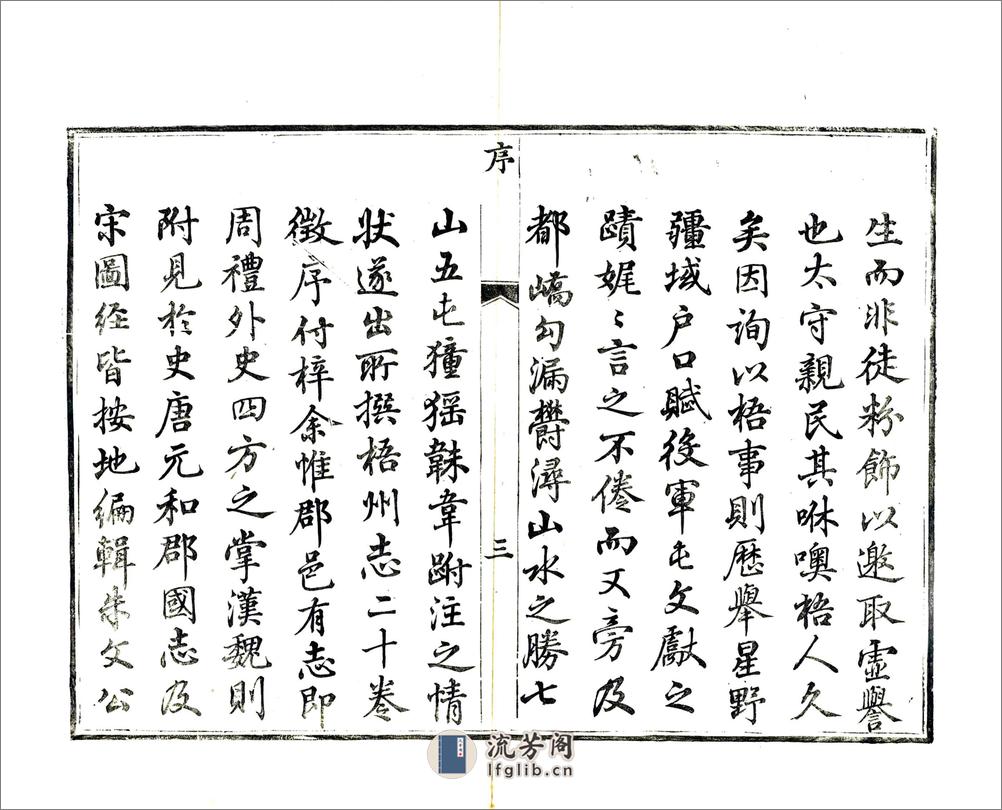 生而非徒粉飾以邀取虛譽
也太守親民其咻噢梧人久
矣因詢以梧事則歷舉星野
疆域户口賦役軍屯文獻之
蹟娓〻言之不倦而又旁及
都嶠勾漏欝潯山水之勝七
序
三
山五屯獞猺韎韋跗注之情
狀遂出所撰梧州志二十卷
徵序付梓余惟郡邑有志即
周禮外史四方之掌漢魏則
附見於史唐元和郡國志及
宋圖経皆按地編輯朱文公
流芳阁
lfglib.cn